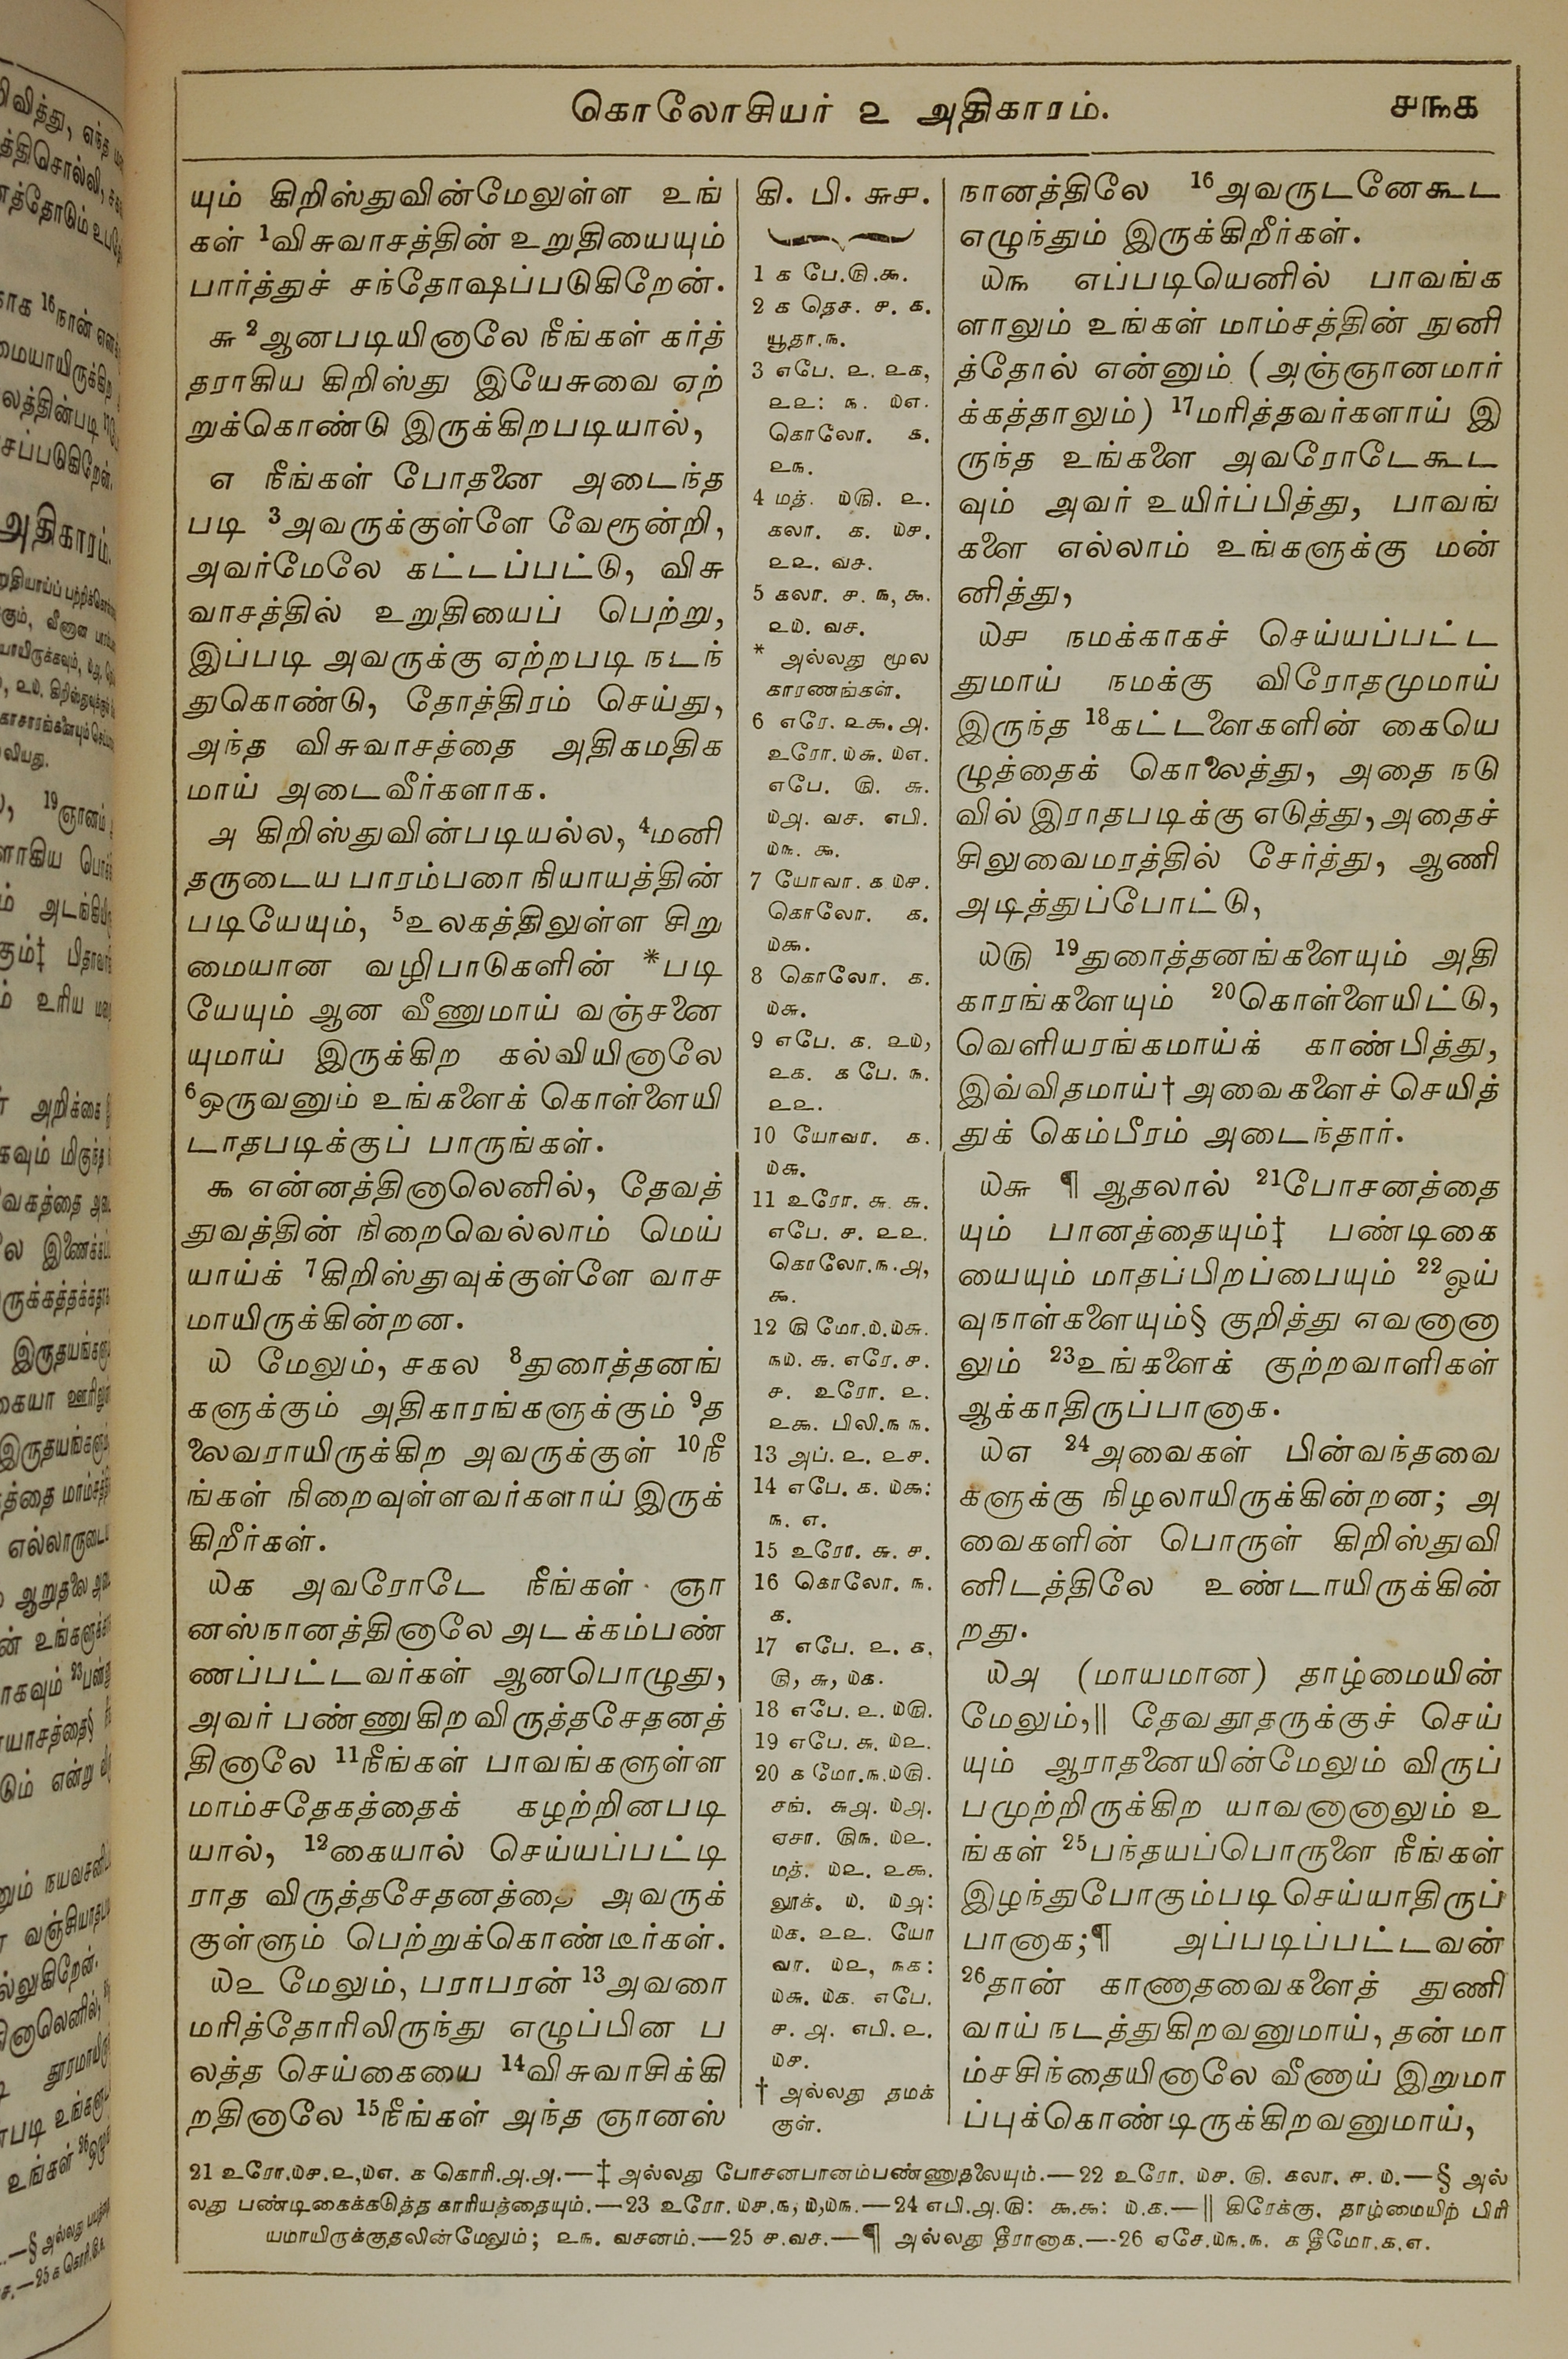 கொலோசியர் ௨ அதிகாரம்.
௪௩௧
யும் கிறிஸ்துவின்மேலுள்ள உங்
கள் 1விசுவாசத்தின் உறுதியையும்
பார்த்துச் சந்தோஷப்படுகிறேன்.
௬ 2ஆனபடியினாலே நீங்கள் கர்த்
தராகிய கிறிஸ்து இயேசுவை ஏற்
றுக்கொண்டு இருக்கிறபடியால்,
௭ நீங்கள் போதனை அடைந்த
படி 3அவருக்குள்ளே வேரூன்றி,
அவர்மேலே கட்டப்பட்டு, விசு
வாசத்தில் உறுதியைப் பெற்று,
இப்படி அவருக்கு ஏற்றபடி நடந்
துகொண்டு, தோத்திரம் செய்து,
அந்த விசுவாசத்தை அதிகமதிக
மாய் அடைவீர்களாக.
௮ கிறிஸ்துவின்படியல்ல, 4மனி
தருடைய பாரம்பரை நியாயத்தின்
படியேயும், 5உலகத்திலுள்ள சிறு
மையான வழிபாடுகளின் *படி
யேயும் ஆன வீணுமாய் வஞ்சனை
யுமாய் இருக்கிற கல்வியினாலே
6ஒருவனும் உங்களைக் கொள்ளையி
டாதபடிக்குப் பாருங்கள்.
௯ என்னத்தினாலெனில், தேவத்
துவத்தின் நிறைவெல்லாம் மெய்
யாய்க் 7கிறிஸ்துவுக்குள்ளே வாச
மாயிருக்கின்றன.
௰ மேலும், சகல 8துரைத்தனங்
களுக்கும் அதிகாரங்களுக்கும் 9த
லைவராயிருக்கிற அவருக்குள் 10நீ
ங்கள் நிறைவுள்ளவர்களாய் இருக்
கிறீர்கள்.
௰௧ அவரோடே நீங்கள் ஞா
னஸ்நானத்தினாலே அடக்கம்பண்
ணப்பட்டவர்கள் ஆனபொழுது,
அவர் பண்ணுகிற விருத்தசேதனத்
தினாலே 11நீங்கள் பாவங்களுள்ள
மாம்சதேகத்தைக் கழற்றினபடி
யால், 12கையால் செய்யப்பட்டி
ராத விருத்தசேதனத்தை அவருக்
குள்ளும் பெற்றுக்கொண்டீர்கள்.
௰௨ மேலும், பராபரன் 13அவரை
மரித்தோரிலிருந்து எழுப்பின ப
லத்த செய்கையை 14விசுவாசிக்கி
றதினாலே 15நீங்கள் அந்த ஞானஸ்
கி. பி. ௬௪.
1 ௧ பே.௫.௯.
2 ௧ தெச. ௪. ௧.
யூதா.௩.
3 எபே. ௨. ௨௧,
௨௨: ௩. ௰௭.
கொலோ. ௧.
௨௩.
4 மத். ௰௫. ௨.
கலா. ௧. ௰௪.
௨௨. வச.
5 கலா. ௪. ௩, ௯.
௨௰. வச.
* அல்லது மூல
காரணங்கள்.
6 எரே. ௨௯. ௮.
உரோ.௰௬. ௰௭.
எபே. ௫. ௬.
௰௮. வச. எபி.
௰௩. ௯.
7 யோவா. ௧ ௰௪.
கொலோ. ௧.
௰௯.
8 கொலோ. ௧.
௰௬.
9 எபே. ௧. ௨௰,
௨௧. ௧ பே. ௩.
௨௨.
10 யோவா. ௧.
௰௬.
11 உரோ. ௬. ௬.
எபே. ௪. ௨௨.
கொலோ.௩.௮,
௯.
12 ௫ மோ.௰.௰௬.
௩௰. ௬. எரே. ௪.
௪. உரோ. ௨.
௨௯. பிலி.௩ ௩.
13 அப். ௨. ௨௪.
14 எபே. ௧. ௰௯:
௩. ௭.
15 உரோ. ௬. ௪.
16 கொலோ. ௩.
௧.
17 எபே. ௨. ௧,
௫, ௬, ௰௧.
18 எபே. ௨. ௰௫.
19 எபே. ௬. ௰௨.
20 ௧ மோ.௩.௰௫.
சங். ௬௮. ௰௮.
ஏசா. ௫௩. ௰௨.
மத். ௰௨. ௨௯.
லூக். ௰. ௰௮:
௰௧. ௨௨. யோ
வா. ௰௨, ௩௧:
௰௬. ௰௧. எபே.
௪. ௮. எபி. ௨.
௰௪.
† அல்லது தமக்
குள்.
நானத்திலே 16அவருடனேகூட
எழுந்தும் இருக்கிறீர்கள்.
௰௩ எப்படியெனில் பாவங்க
ளாலும் உங்கள் மாம்சத்தின் நுனி
த்தோல் என்னும் (அஞ்ஞானமார்
க்கத்தாலும்) 17மரித்தவர்களாய் இ
ருந்த உங்களை அவரோடேகூட
வும் அவர் உயிர்ப்பித்து, பாவங்
களை எல்லாம் உங்களுக்கு மன்
னித்து,
௰௪ நமக்காகச் செய்யப்பட்ட
துமாய் நமக்கு விரோதமுமாய்
இருந்த 18கட்டளைகளின் கையெ
ழுத்தைக் கொலைத்து, அதை நடு
வில் இராதபடிக்கு எடுத்து, அதைச்
சிலுவைமரத்தில் சேர்த்து, ஆணி
அடித்துப்போட்டு,
௰௫ 19துரைத்தனங்களையும் அதி
காரங்களையும் 20கொள்ளையிட்டு,
வெளியரங்கமாய்க் காண்பித்து,
இவ்விதமாய்† அவைகளைச் செயித்
துக் கெம்பீரம் அடைந்தார்.
௰௬ ¶ ஆதலால் 21போசனத்தை
யும் பானத்தையும்‡ பண்டிகை
யையும் மாதப்பிறப்பையும் 22ஒய்
வுநாள்களையும்§ குறித்து எவனானா
லும் 23உங்களைக் குற்றவாளிகள்
ஆக்காதிருப்பானாக.
௰௭ 24அவைகள் பின்வந்தவை
களுக்கு நிழலாயிருக்கின்றன; அ
வைகளின் பொருள் கிறிஸ்துவி
னிடத்திலே உண்டாயிருக்கின்
றது.
௰௮ (மாயமான) தாழ்மையின்
மேலும்,‖ தேவதூதருக்குச் செய்
யும் ஆராதனையின்மேலும் விருப்
பமுற்றிருக்கிற யாவனானாலும் உ
ங்கள் 25பந்தயப்பொருளை நீங்கள்
இழந்துபோகும்படி செய்யாதிருப்
பானாக;¶ அப்படிப்பட்டவன்
26தான் காணாதவைகளைத் துணி
வாய் நடத்துகிறவனுமாய், தன் மா
ம்சசிந்தையினாலே வீணாய் இறுமா
ப்புக்கொண்டிருக்கிறவனுமாய்,
21 உரோ.௰௪.௨,௰௭. ௧ கொரி.௮.௮.—‡ அல்லது போசனபானம்பண்ணுதலையும்.—22 உரோ. ௰௪. ௫. கலா. ௪. ௰.—§ அல்
லது பண்டிகைக்கடுத்த காரியத்தையும்.—23 உரோ. ௰௪.௩, ௰,௰௩.—24 எபி.௮.௫: ௯.௯: ௰.௧.—‖ கிரேக்கு. தாழ்மையிற் பிரி
யமாயிருக்குதலின்மேலும்; ௨௩. வசனம்.—25 ௪.வச.—¶ அல்லது தீரானாக.—-26 ஏசே.௰௩.௩. ௧ தீமோ.௧.௭.